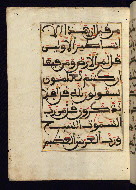 من قبل إن هذا إلا
أساطير الأولين
قل لمن الأرض ومن فيها
إن كنتم تعلمون
سيقولون لله قل أفلا
تذكرون قل من رب
السموات السبع
ورب العرش العظيم